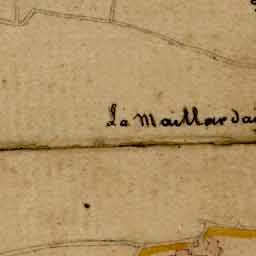 La Maillardai